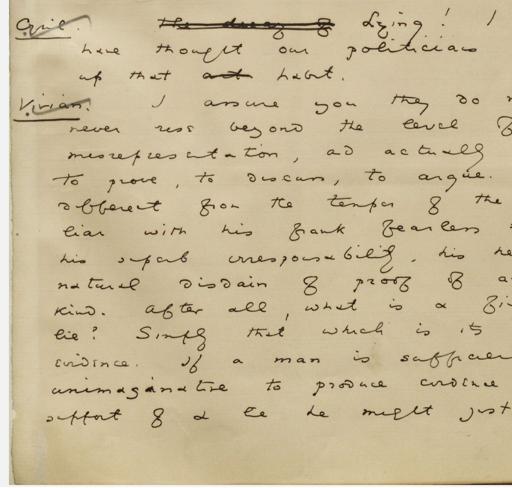 Cyril. The decay of Lying! I
have thought our politicians
up that art habit.
Vivian. I assure you they do
never rise beyond the level of
misrepresentation, and actually
to prove, to discuss, to argue.
different from the temper of the
liar with his frank fearless
his superb irresponsibility, his
natural disdain of proof of
kind. After all, what is a
lie? Simply that which is its
evidence. If a man is
unimaginative to produce evidence
support of a lie he might just